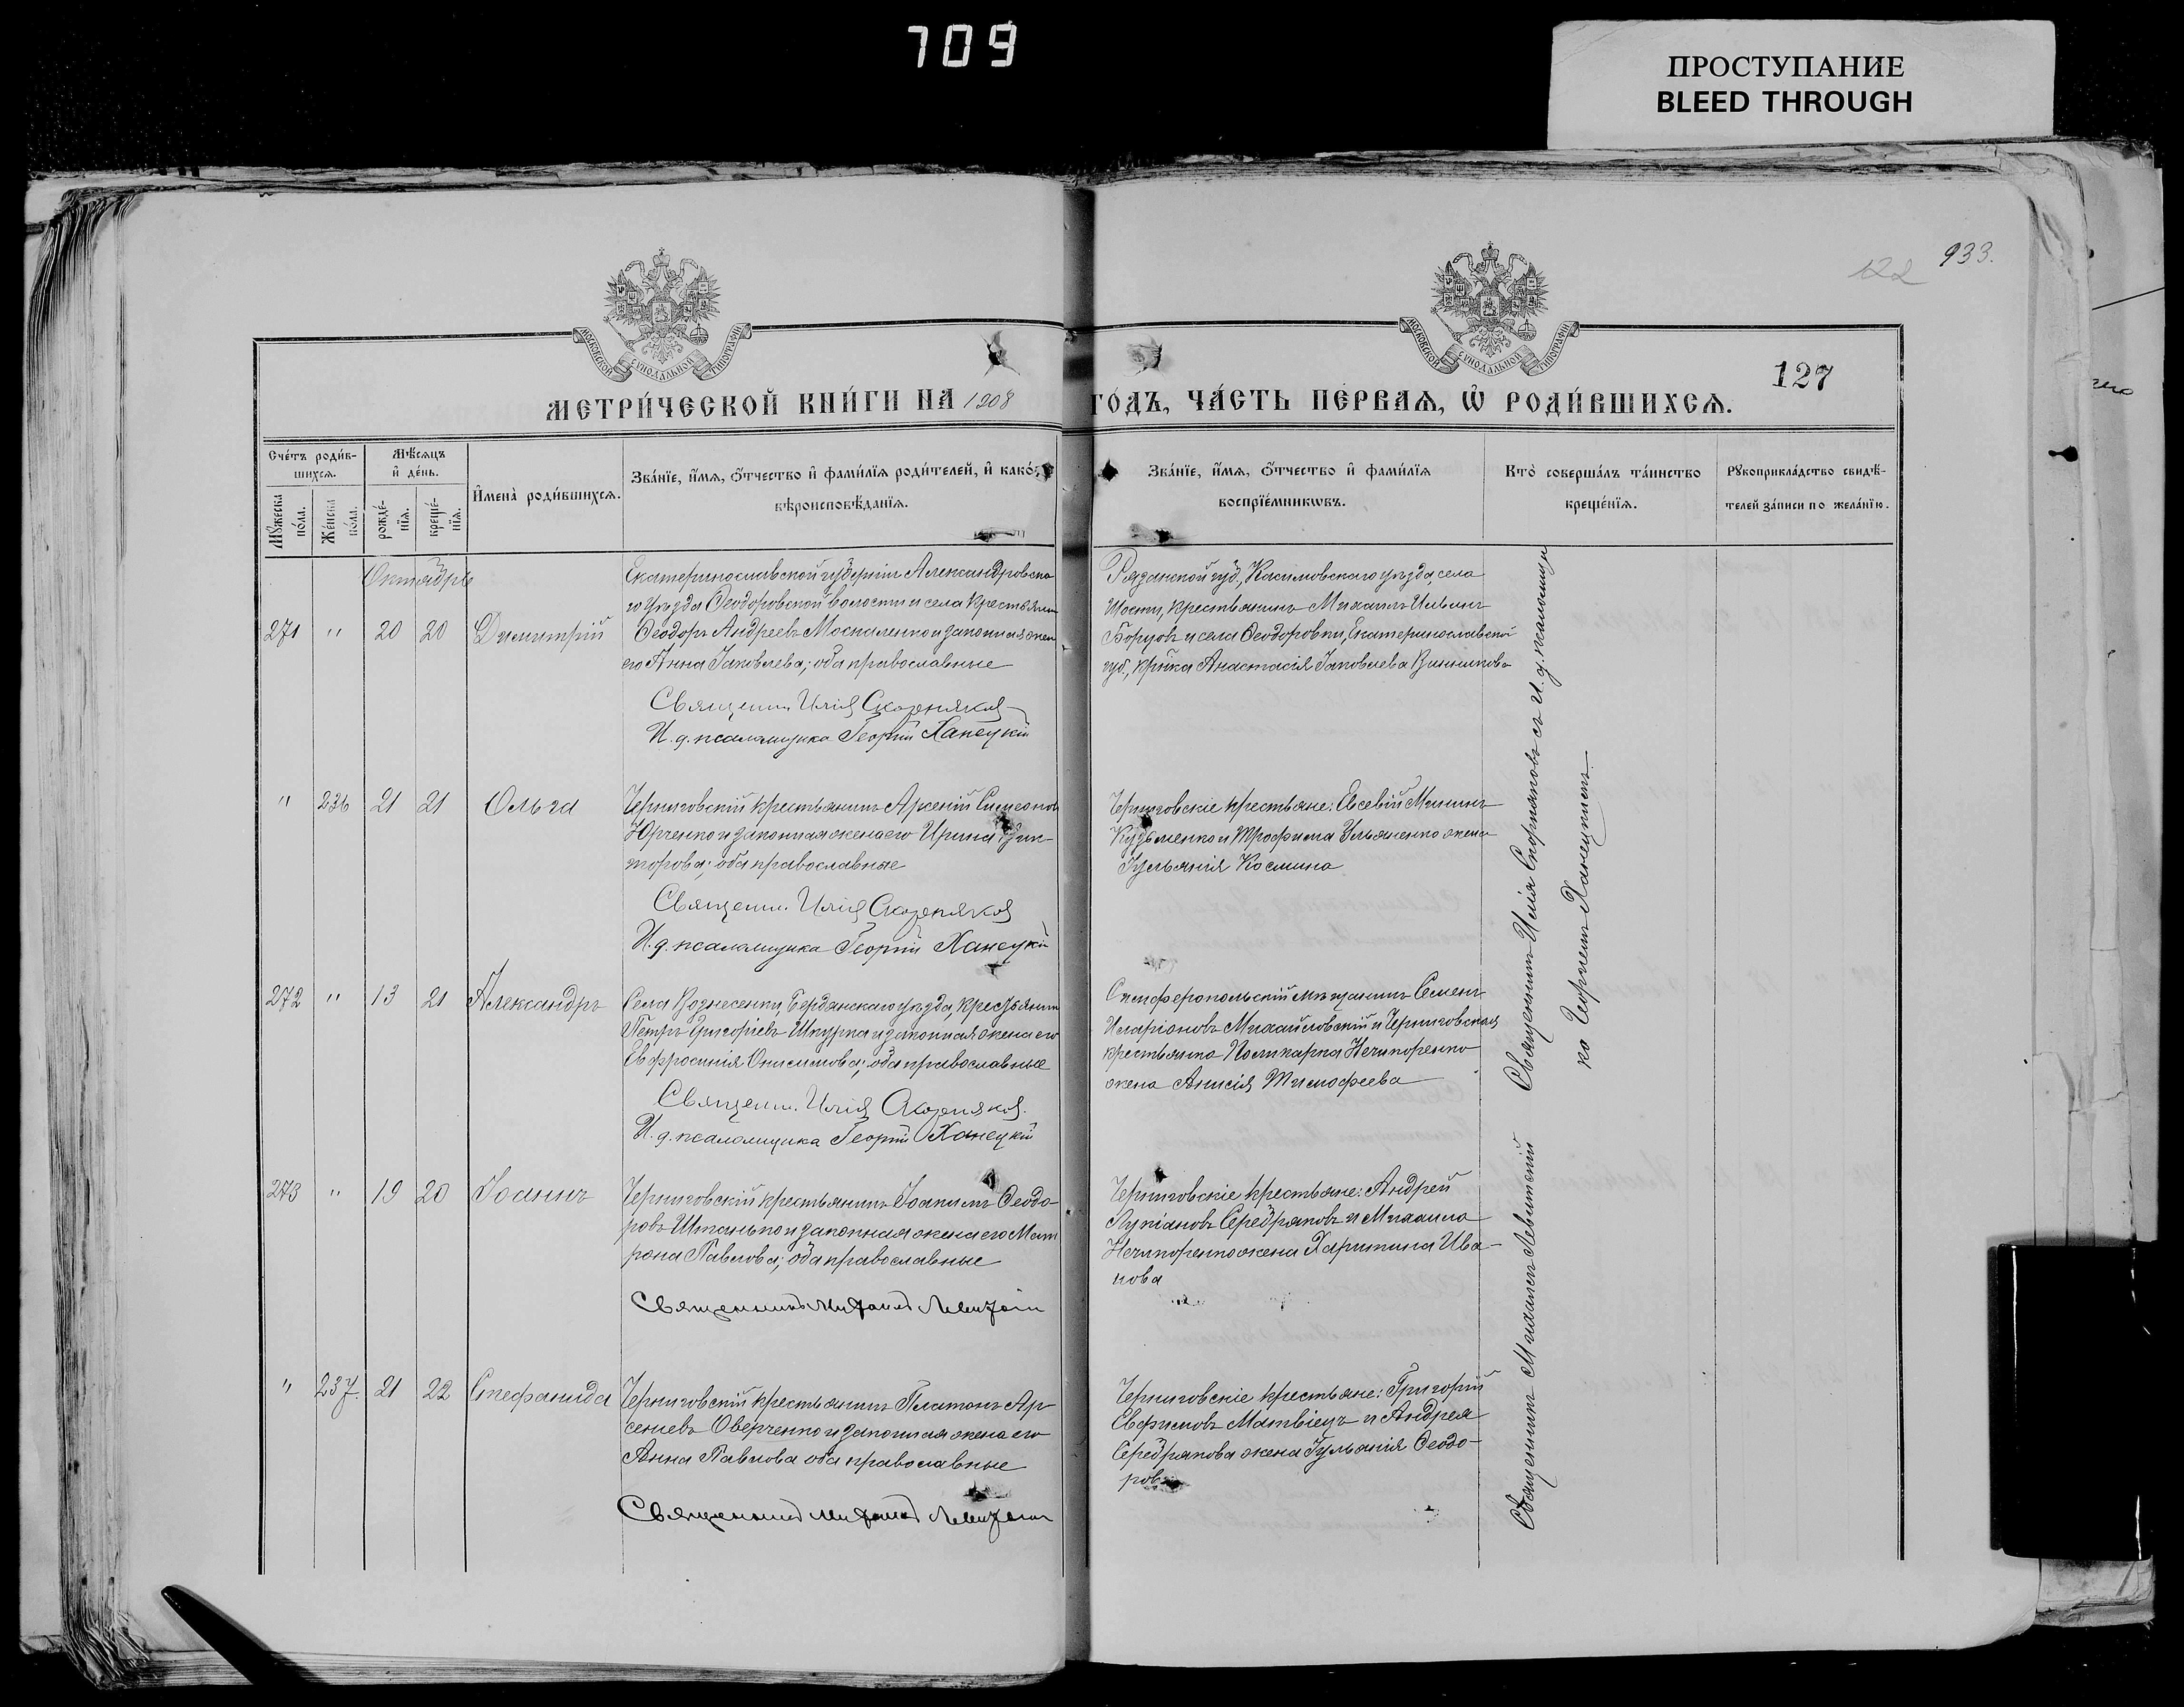 709
ПРОСТУПАНИЕ
BLEED THROUGH
933.
122
127
МОСКОВСКОЙ СѴНОДАЛЬНОЙ ТИПОГРАФІИ
МОСКОВСКОЙ СѴНОДАЛЬНОЙ ТИПОГРАФІИ
МЕТРИ́ЧЕСКОЙ КНИ́ГИ НА 1908
ГО́ДЪ, ЧА́СТЬ ПЕ́РВАѦ, Ѡ҆ РОДИ́ВШИХСѦ.
Счéтъ роди́в-
шихсѧ.
Мꙋжеска
по́ла.
Же́нска
по́ла.
Мѣ́сѧцъ
и҆ де́нь.
рожде́-
нїѧ.
креще́-
нїѧ.
И҆мена̀ роди́вшихсѧ.
Зва́нїе, и҆́мѧ, ѻ҆́тчество и҆ фами́лїѧ роди́телей, и҆ како́й
вѣроисповѣ́данїѧ.
Зва́нїе, и҆́мѧ, ѻ҆́тчество и҆ фами́лїѧ
воспрїе́мникѡвъ.
Кто̀ соверша́лъ та́инство
креще́нїѧ.
Рꙋкоприкла́дство свидѣ́-
телей за́писи по жела́нїю.
Октябрь
271 " 20 20 Димитрій
Екатеринославской губерніи Александровска
го уѣзда Ѳеодоровской волости и села крестьянин
Ѳеодоръ Андреевъ Москаленко и законная жен
его Анна Іаковлева; оба православные
Священн. Илія Скорняков
И. д. псаломщика Георгій Ханецкій
Рязанской губ., Касимовскаго уѣзда, села
Шости, крестьянинъ Михаилъ Ильинъ
Борцовъ и села Ѳеодоровки, Екатеринославской
губ., кр-нка Анастасія Іаковлева
" 236 21 21 Ольга
Черниговскій крестьянинъ Арсеній Симеонов
Юрченко и законная жена его Ирина Вик-
торова; оба православные
Священн. Илія Скорняков
И. д. псаломщика Георгій Ханецкій
Черниговскіе крестьяне: Евсевій Мининъ
Кузьменко и Трофима Ульяненко жена
Іуліанія Космина
272 " 13 21 Александръ
Села Вознесенки, Бердянскаго уѣзда, крестьянин
Петръ Григоріевъ Шкурка и законная жена его
Евфросинія Онисимова; оба православные
Священн. Илія Скорняков.
И. д. псаломщика Георгій Ханецкій
Симферопольскій мѣщанинъ Семенъ
Иларіоновъ Михайловскій и Черниговская
крестьянка Поликарпа Нечипоренко
жена Анисія Тимофеева
273 " 19 20 Іоаннъ
Черниговскій крестьянинъ Іоакимъ Ѳеодо-
ровъ Штанько и законная жена его Мат
рона Павлова; оба православные
Священникъ Михаилъ Левитскій
Черниговскіе крестьяне: Андрей
Лукіановъ Середряковъ и Михаила
Нечипоренко жена Харитина Ива-
нова
" 237. 21 22 Стефанида
Черниговскій крестьянинъ Платонъ Ар-
сеніевъ Оверченко и законная жена его
Анна Павлова оба православные
Священникъ Михаилъ Левитскій
Черниговскіе крестьяне: Григорій
Евфимовъ Матвіецъ и Андрея
Середрякова жена Іуліанія Ѳеодо-
рова
Священникъ Илія Скорняковъ съ И. д. псаломщи
ка Георгіемъ Ханецкимъ.
Священникъ Михаилъ Левитскій